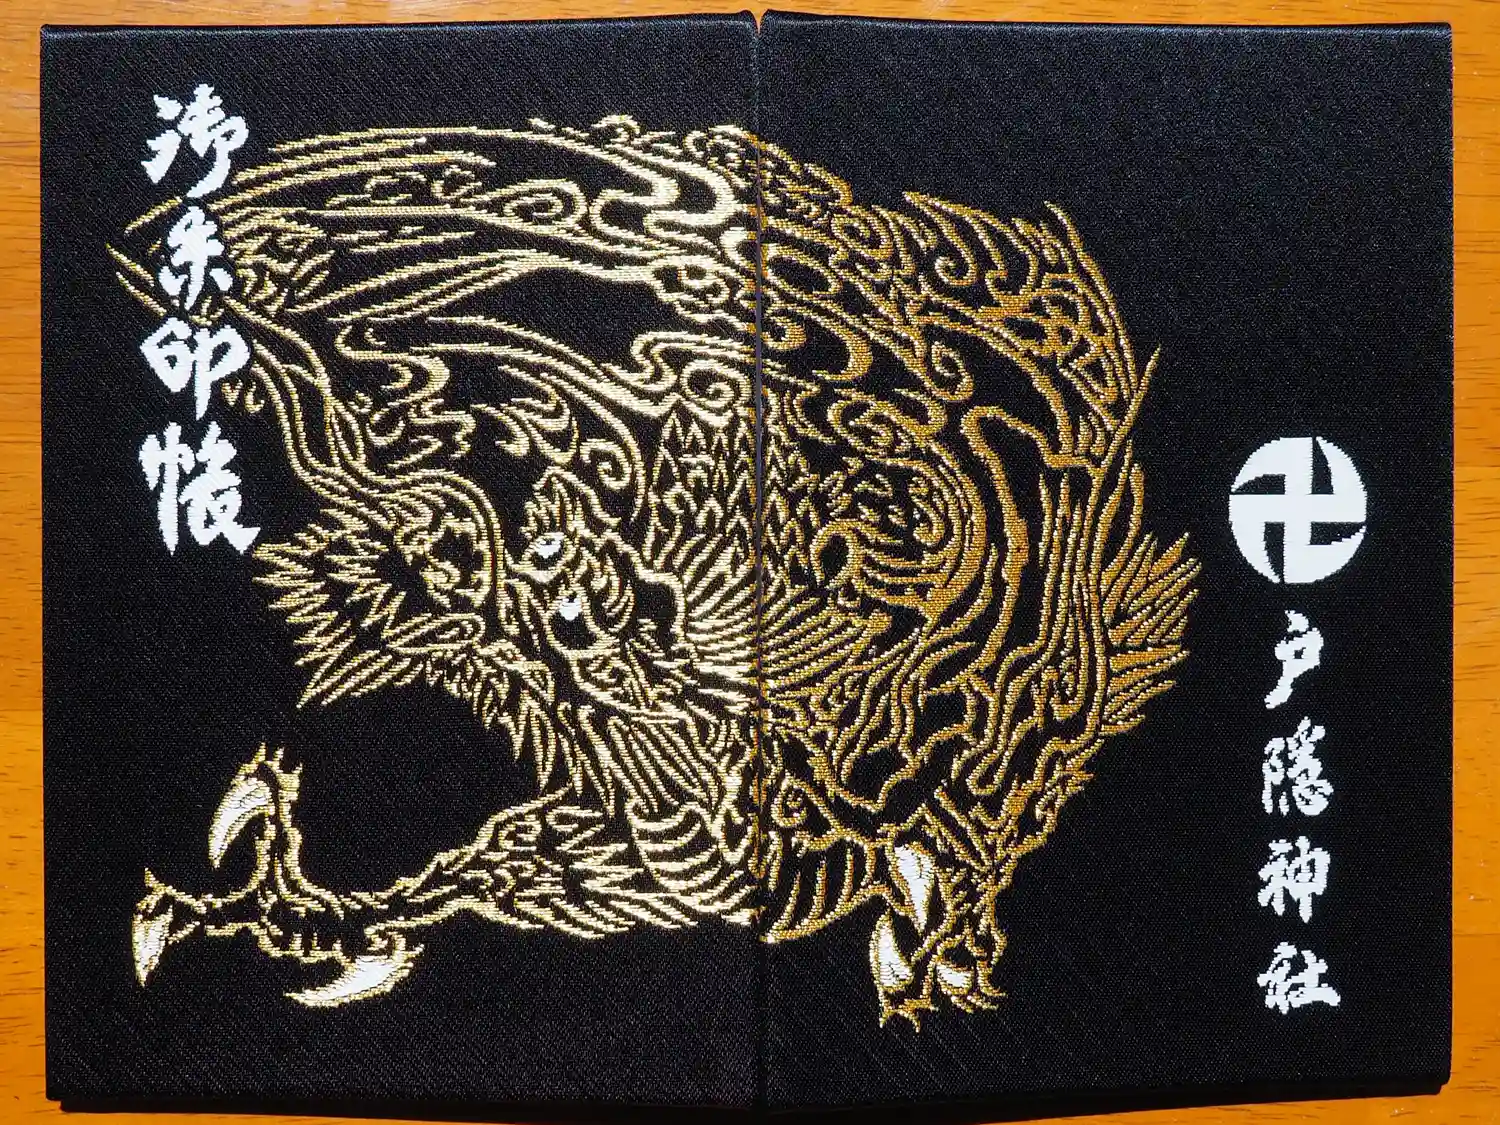 御朱印帳
戸隠神社